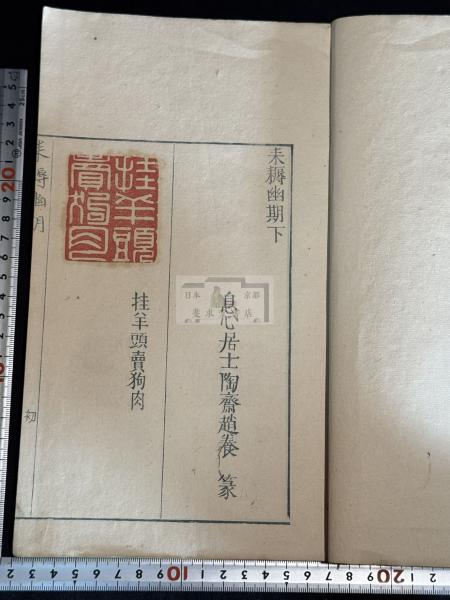 耒耨幽期下
息心居士陶齋趙養 篆
挂羊頭賣狗肉
挂羊頭賣狗肉
耒耨幽期
初
日本 京都